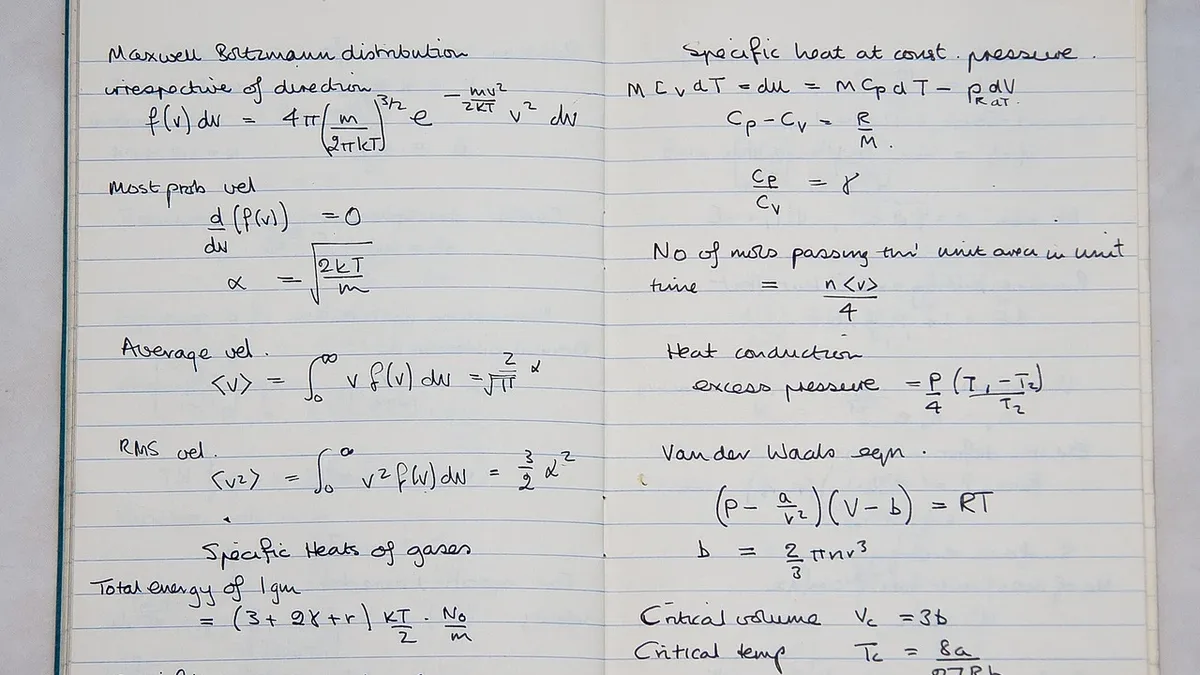 Maxwell Boltzmann distribution
irrespective of direction
f(v) dv = 4π (m/2πkT)^3/2 e^-mv²/2kT v² dv
Most prob vel
d/dv (f(v)) = 0
α = √(2kT/m)
Average vel.
<v> = ∫₀^∞ v f(v) dv = 2/√π α
RMS vel.
<v²> = ∫₀^∞ v² f(v) dv = 3/2 α²
Specific Heats of gases
Total energy of 1gm
= (3 + 2γ + r) kT/2 · N₀/m
Specific heat at const. pressure.
M Cv dT = du = M Cp dT - p dV
R dT.
Cp - Cv = R/M.
Cp/Cv = γ
No of mols passing thr' unit area in unit
time = n<v>/4
Heat conduction
excess pressure = P/4 (T₁ - T₂)/T₂
Van der Waals eqn.
(P - a/v²)(V - b) = RT
b = 2/3 πnr³
Critical volume Vc = 3b
Critical temp Tc = 8a/27Rb